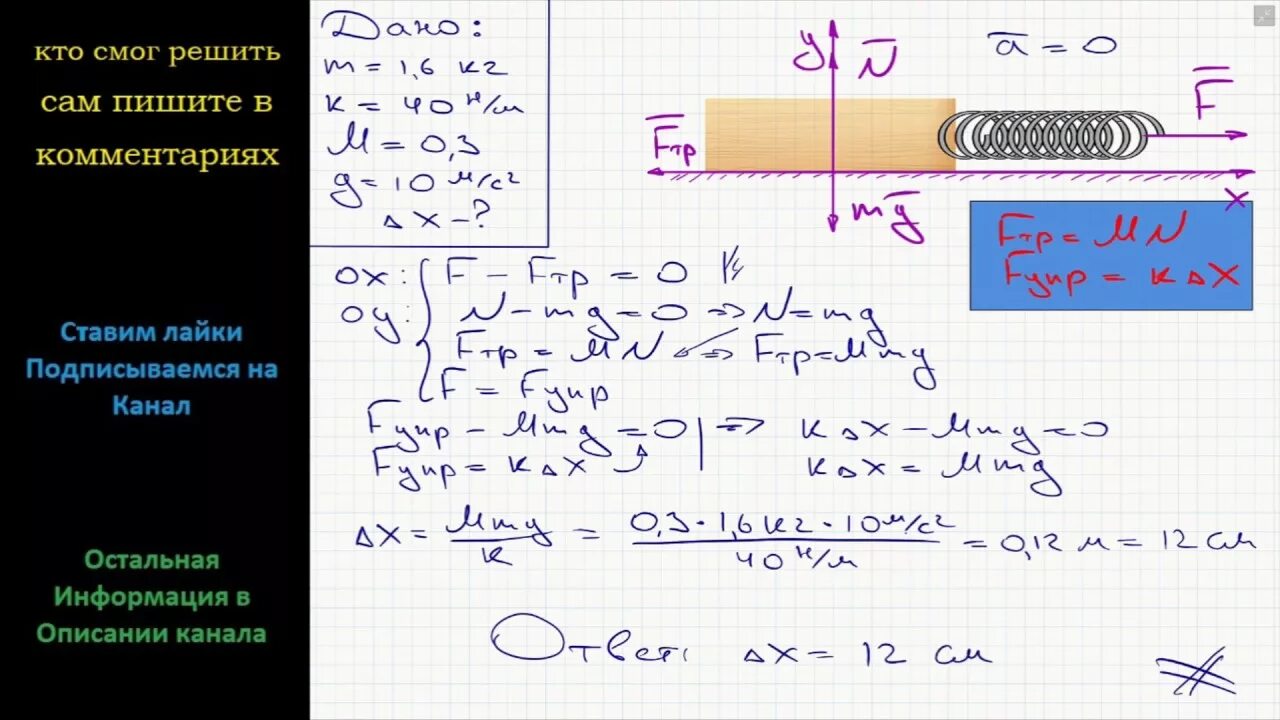 кто смог решить
сам пишите в
комментариях
Ставим лайки
Подписываемся на
Канал
Остальная
Информация в
Описании канала
Дано:
m = 1,6 кг
к = 40 н/м
M = 0,3
g = 10 м/с²
Δ X - ?
y
N̅
a̅ = 0
F̅тр
F̅
mg̅
x
Fтр = M N
Fупр = к Δ X
ox: F - Fтр = 0
oy: N - mg = 0 => N = mg
Fтр = M N => Fтр = Mmg
F = Fупр
Fупр - Mmg = 0 => к Δ X - Mmg = 0
Fупр = к Δ X к Δ X = Mmg
ΔX = Mmg / к = 0,3 · 1,6 кг · 10 м/с² / 40 н/м = 0,12 м = 12 см
Ответ: ΔX = 12 см